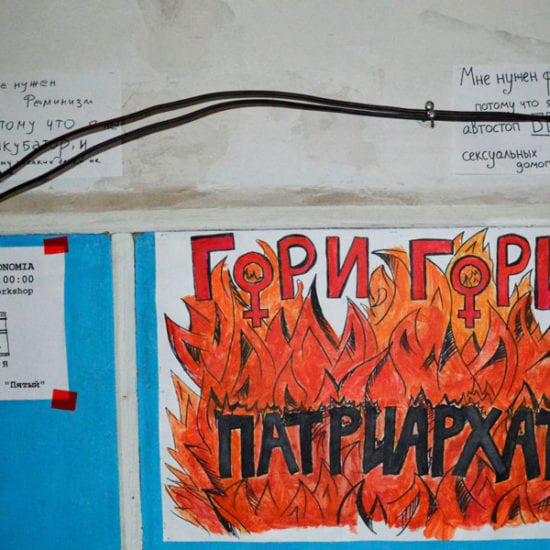 не нужен
Феминизм
потому что я не
инкубатор, и
Мне нужен ф
потому что я
автостоп
сексуальных
домог
ONOMIA
:00:00
orkshop
Я
"Пятый"
ГОРИ ГОРИ
ПАТРИАРХАТ